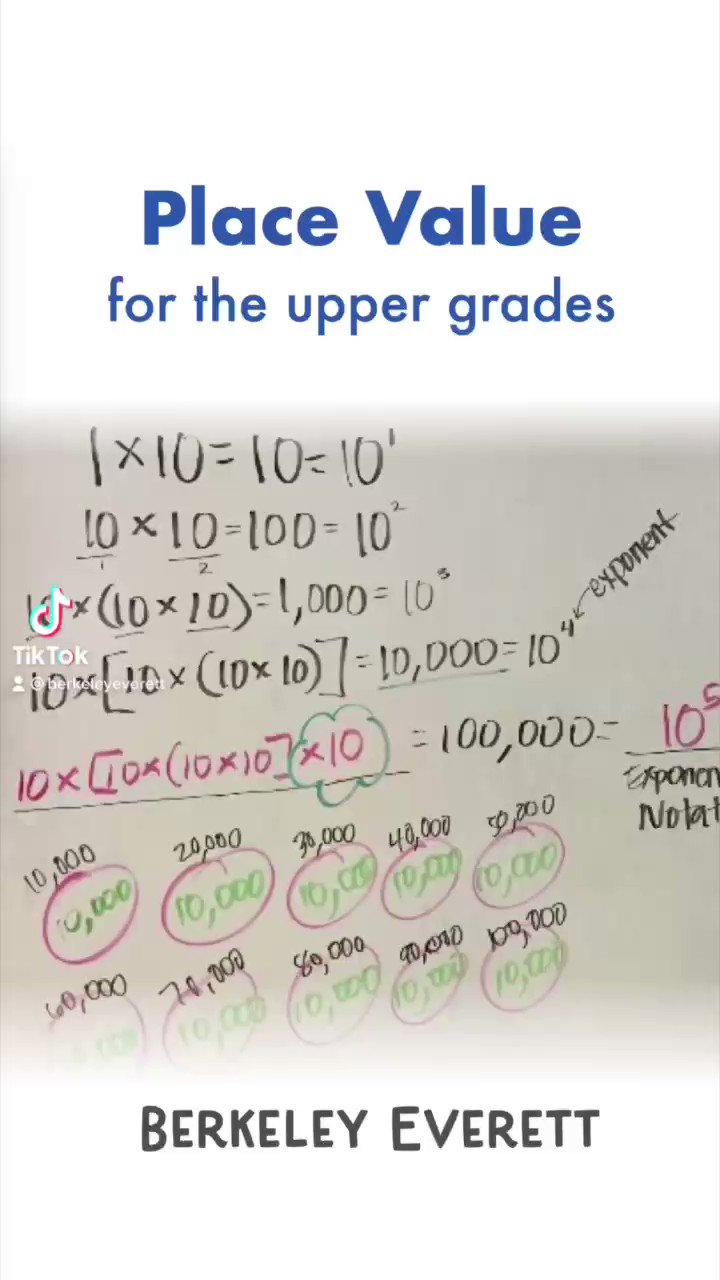 Place Value
for the upper grades
1 × 10 = 10 = 10¹
10 × 10 = 100 = 10²
1 2
× (10 × 10) = 1,000 = 10³
exponent
10 × [10 × (10 × 10)] = 10,000 = 10⁴
TikTok
@berkeleyeverett
10 × [10 × (10 × 10] × 10 = 100,000 = 10⁵
Exponen
Notat
10,000 20,000 30,000 40,000 50,000
10,000 10,000 10,000 10,000 10,000
60,000 70,000 80,000 90,000 100,000
10,000 10,000 10,000 10,000
BERKELEY EVERETT